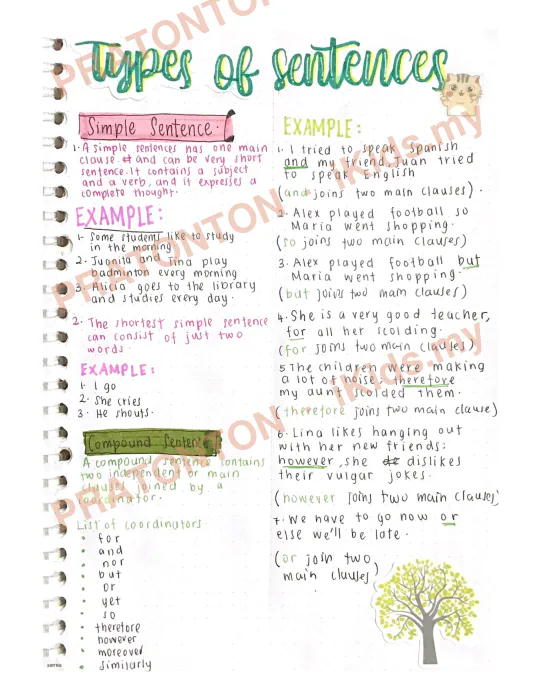 Types of sentences
Simple Sentence.
1. A simple sentences has one main
clause. and can be very short
sentence. It contains a subject
and a verb, and it expresses a
complete thought.
EXAMPLE:
1. Some students like to study
in the morning
2. Juanita and Tina play
badminton every morning
3. Alicia goes to the library
and studies every day.
2. The shortest simple sentence
can consist of just two
words.
EXAMPLE:
1. I go
2. She cries
3. He shouts.
Compound Sentence
A compound sentence contains
two independent or main
clauses joined by a
coordinator.
List of coordinators
• for
• and
• nor
• but
• or
• yet
• so
• therefore
• however
• moreover
• similarly
EXAMPLE:
1. I tried to speak Spanish
and my friend Juan tried
to speak English
(and joins two main clauses).
2. Alex played football so
Maria went shopping.
(so joins two main clauses)
3. Alex played football but
Maria went shopping.
(but joins two main clauses)
4. She is a very good teacher,
for all her scolding.
(for joins two main clauses)
5. The children were making
a lot of noise, therefore
my aunt scolded them.
(therefore joins two main clause)
6. Lina likes hanging out
with her new friends;
however, she dislikes
their vulgar jokes.
(however joins two main clauses)
7. We have to go now or
else we'll be late.
(or join two
main clauses)
PRATONTON
PRATONTON iKids.my
PRATONTON
PRATONTON iKids.my